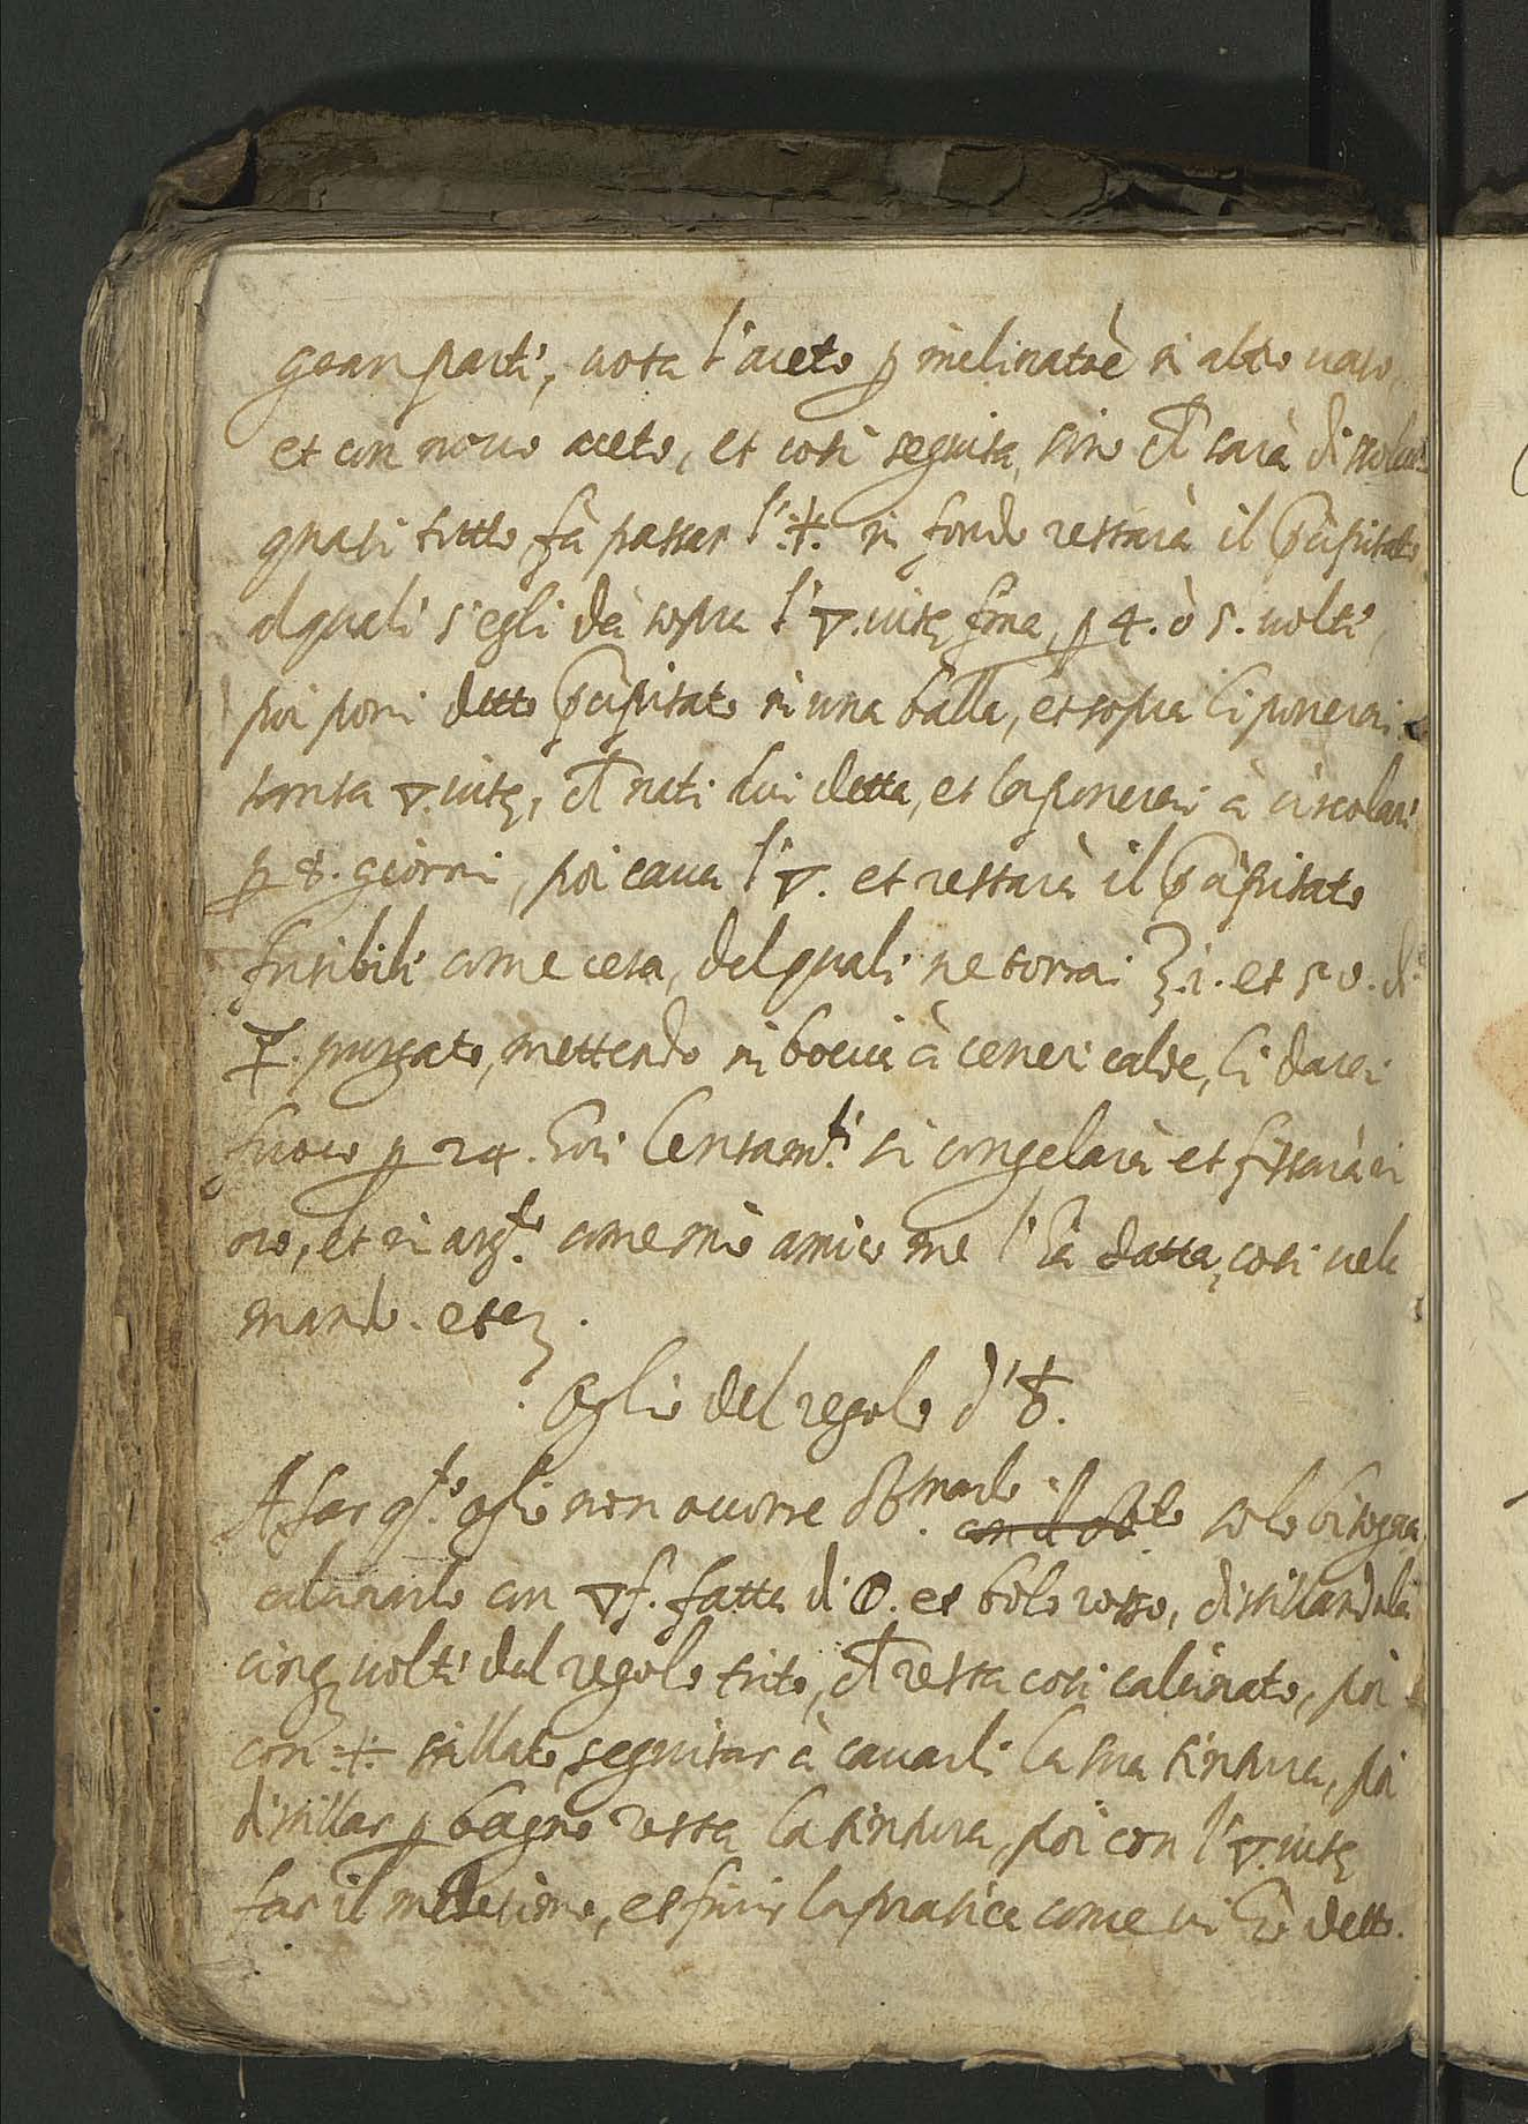 gran parti, vota l'aceto p inclinatoè in altro vaso,
et con novo aceto, et cosi seguita, sino ch sarà dissoluto
quasi tutto, fà passar l'·:+:· in fondo restarà il Pcipitato
alquali s'egli dà sopra l'🜄.vitę fina, p 4. ò 5. volti,
poi poni detto Pcipitato in una balla, et sopra li ponerai
tanta 🜄.vitę, ch nati dui detta, et la ponerai à circolari
p 8. giorni, poi cava l'🜄. et restarà il Pcipitato
fusibili come cera, delquali ne torrai ʒ.i. et 50. di
☿. purgato, mettendo in boccia à ceneri calde, li darai
fuoco p 24. hori lentam.ti si congelarà et fissarà in
oro, et in arg.to come mio amico me l'ha datta, cosi vela
mando. etcʒ.
Oglio del regolo d'♁.
A far q.sto oglio non occorre sb.marlo solo bisogna
calcinarlo con 🜄f. fatta di 🜔. et bolo rosso, distillandola
cinqʒ volti dal regolo trito, ch resta cosi calcinato, poi
con ·:+:· stillato, seguitar à cavarli la sua tintura, poi
distillar p bagno resta la tintura, poi con l'🜄.vitę
far il medesimo, et finir la pratica come vi hò detto.